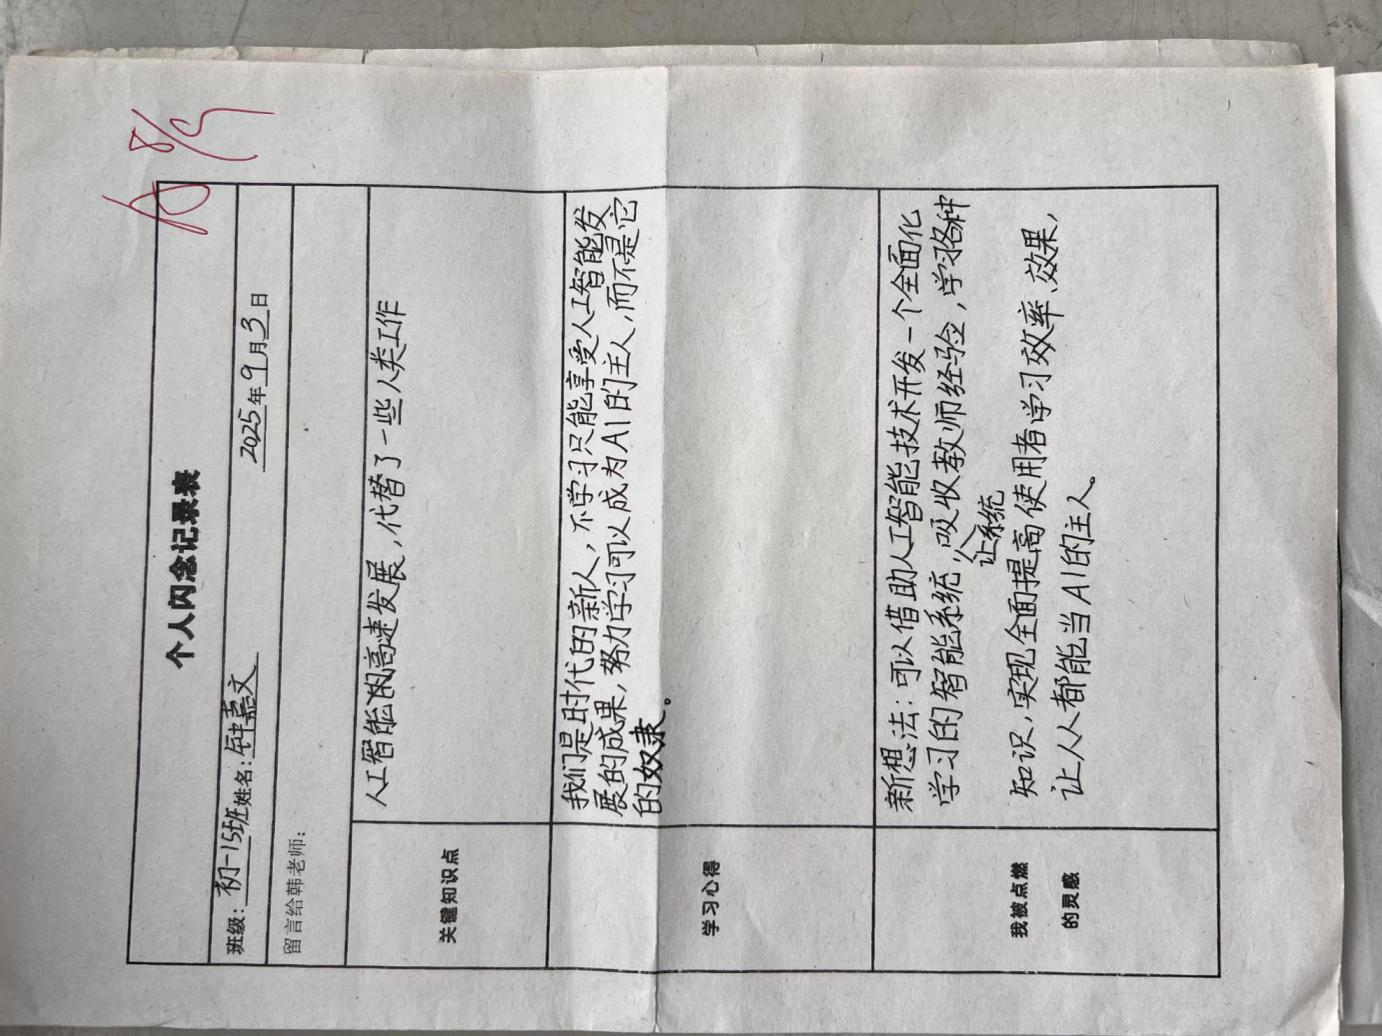 A 8/9
个人闪念记录表
班级：初一15班 姓名：钟嘉文 2025年9月3日
留言给韩老师：
关键知识点
人工智能的高速发展，代替了一些人类工作
学习心得
我们是时代的新人，不学习只能享受人工智能发
展的成果，努力学习可以成为AI的主人，而不是它
的奴隶。
我被点燃
的灵感
新想法：可以借助人工智能技术开发一个全面化
学习的智能系统，让系统吸收教师经验，学习各种
知识，实现全面提高使用者学习效率、效果，
让人人都能当AI的主人。